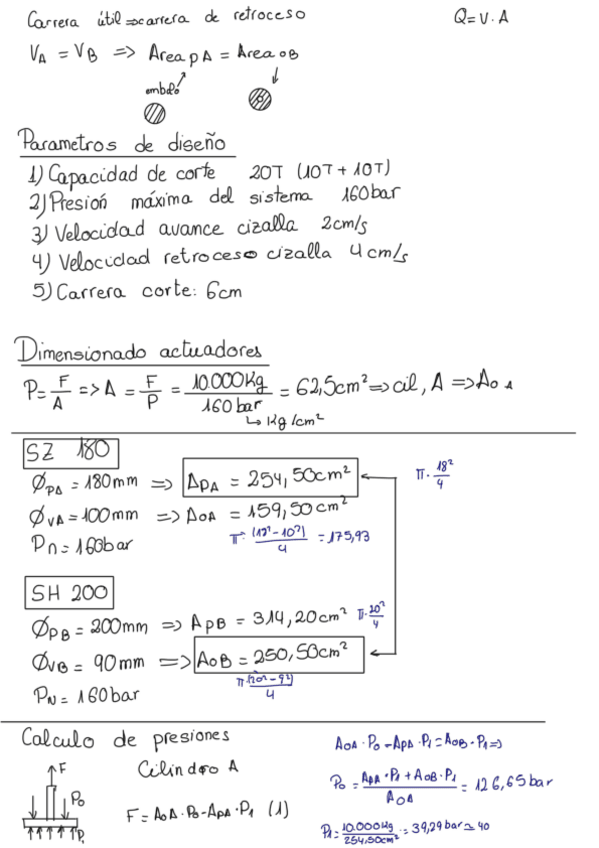 Carrera útil => carrera de retroceso
Q = V · A
V_A = V_B => Area p A = Area o B
embolo
Parametros de diseño
1) Capacidad de corte 20T (10T + 10T)
2) Presión máxima del sistema 160bar
3) Velocidad avance cizalla 2cm/s
4) Velocidad retroceso cizalla 4cm/s
5) Carrera corte: 6cm
Dimensionado actuadores
P = F/A => A = F/P = 10.000Kg/160bar = 62,5cm² => cil, A => A_OA
↳ Kg/cm²
SZ 180
Ø_PA = 180mm => A_PA = 254,50cm²
π · 18²/4
Ø_VA = 100mm => A_OA = 159,50cm²
P_n = 160bar
π · (18² - 10²)/4 = 175,93
SH 200
Ø_PB = 200mm => A_PB = 314,20cm²
π · 20²/4
Ø_VB = 90mm => A_OB = 250,50cm²
π (20² - 9²)/4
P_N = 160bar
Calculo de presiones
Cilindro A
F
P_0
P_1
F = A_OA · P_0 - A_PA · P_1 (1)
A_OA · P_0 - A_PA · P_1 = A_OB · P_1 =>
P_0 = A_PA · P_1 + A_OB · P_1 / A_OA = 126,65 bar
P_1 = 10.000Kg/254,50cm² = 39,29bar ≃ 40